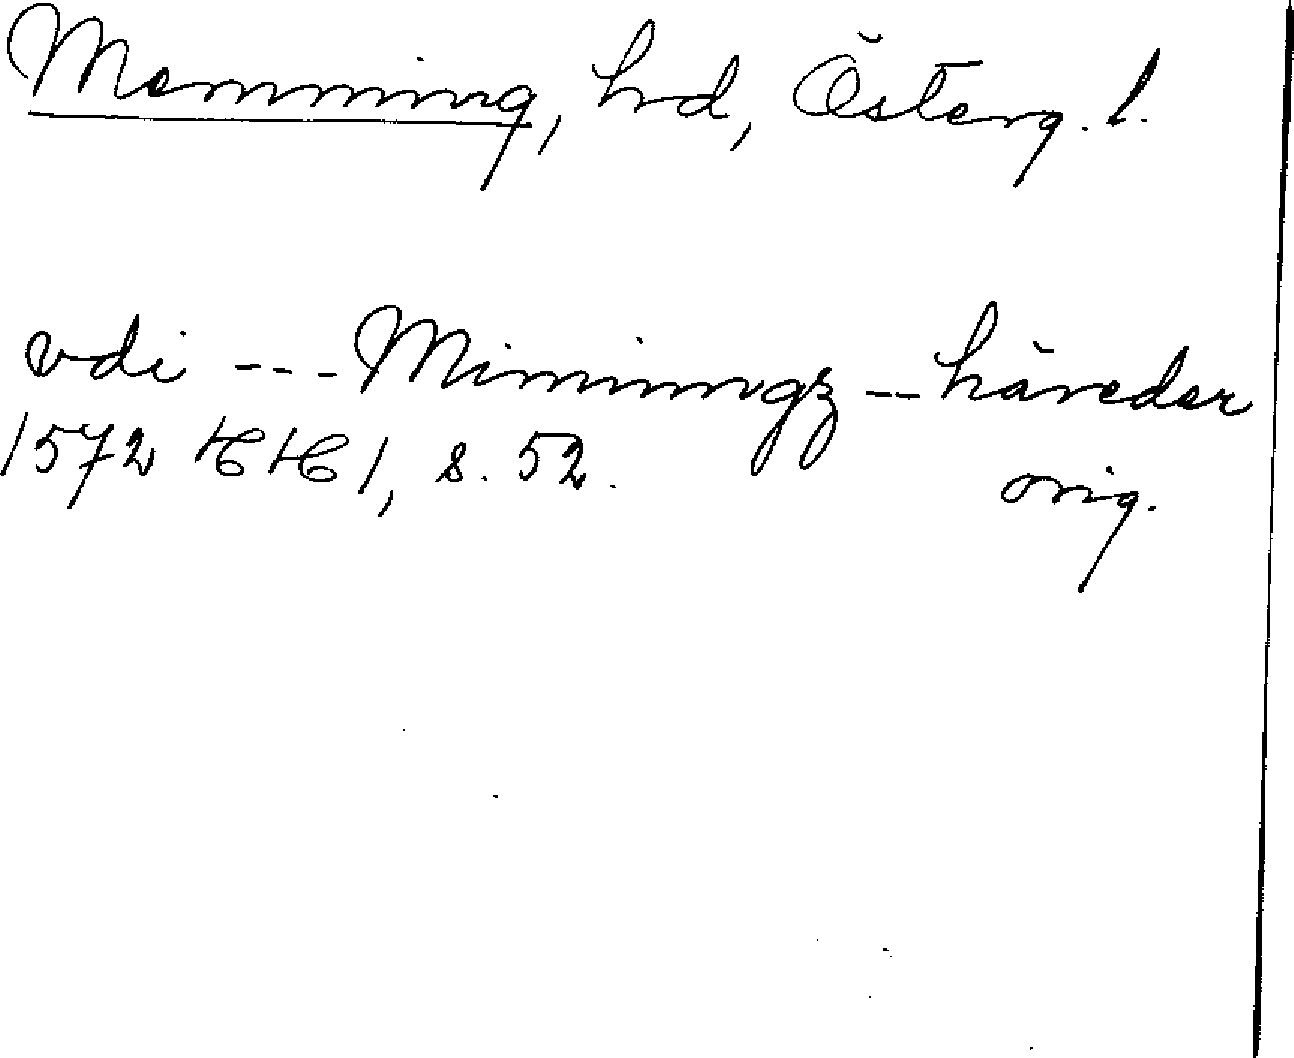 Memming, hd, Österg. l.
vdi --- Minimngz -- häreder
1572 HH 1, s. 52.
orig.